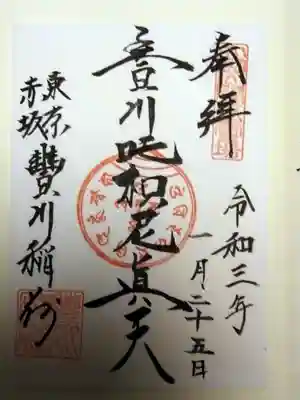 奉拝
令和三年
一月二十五日
豊川吒枳尼真天
東京
赤坂豐川稲荷